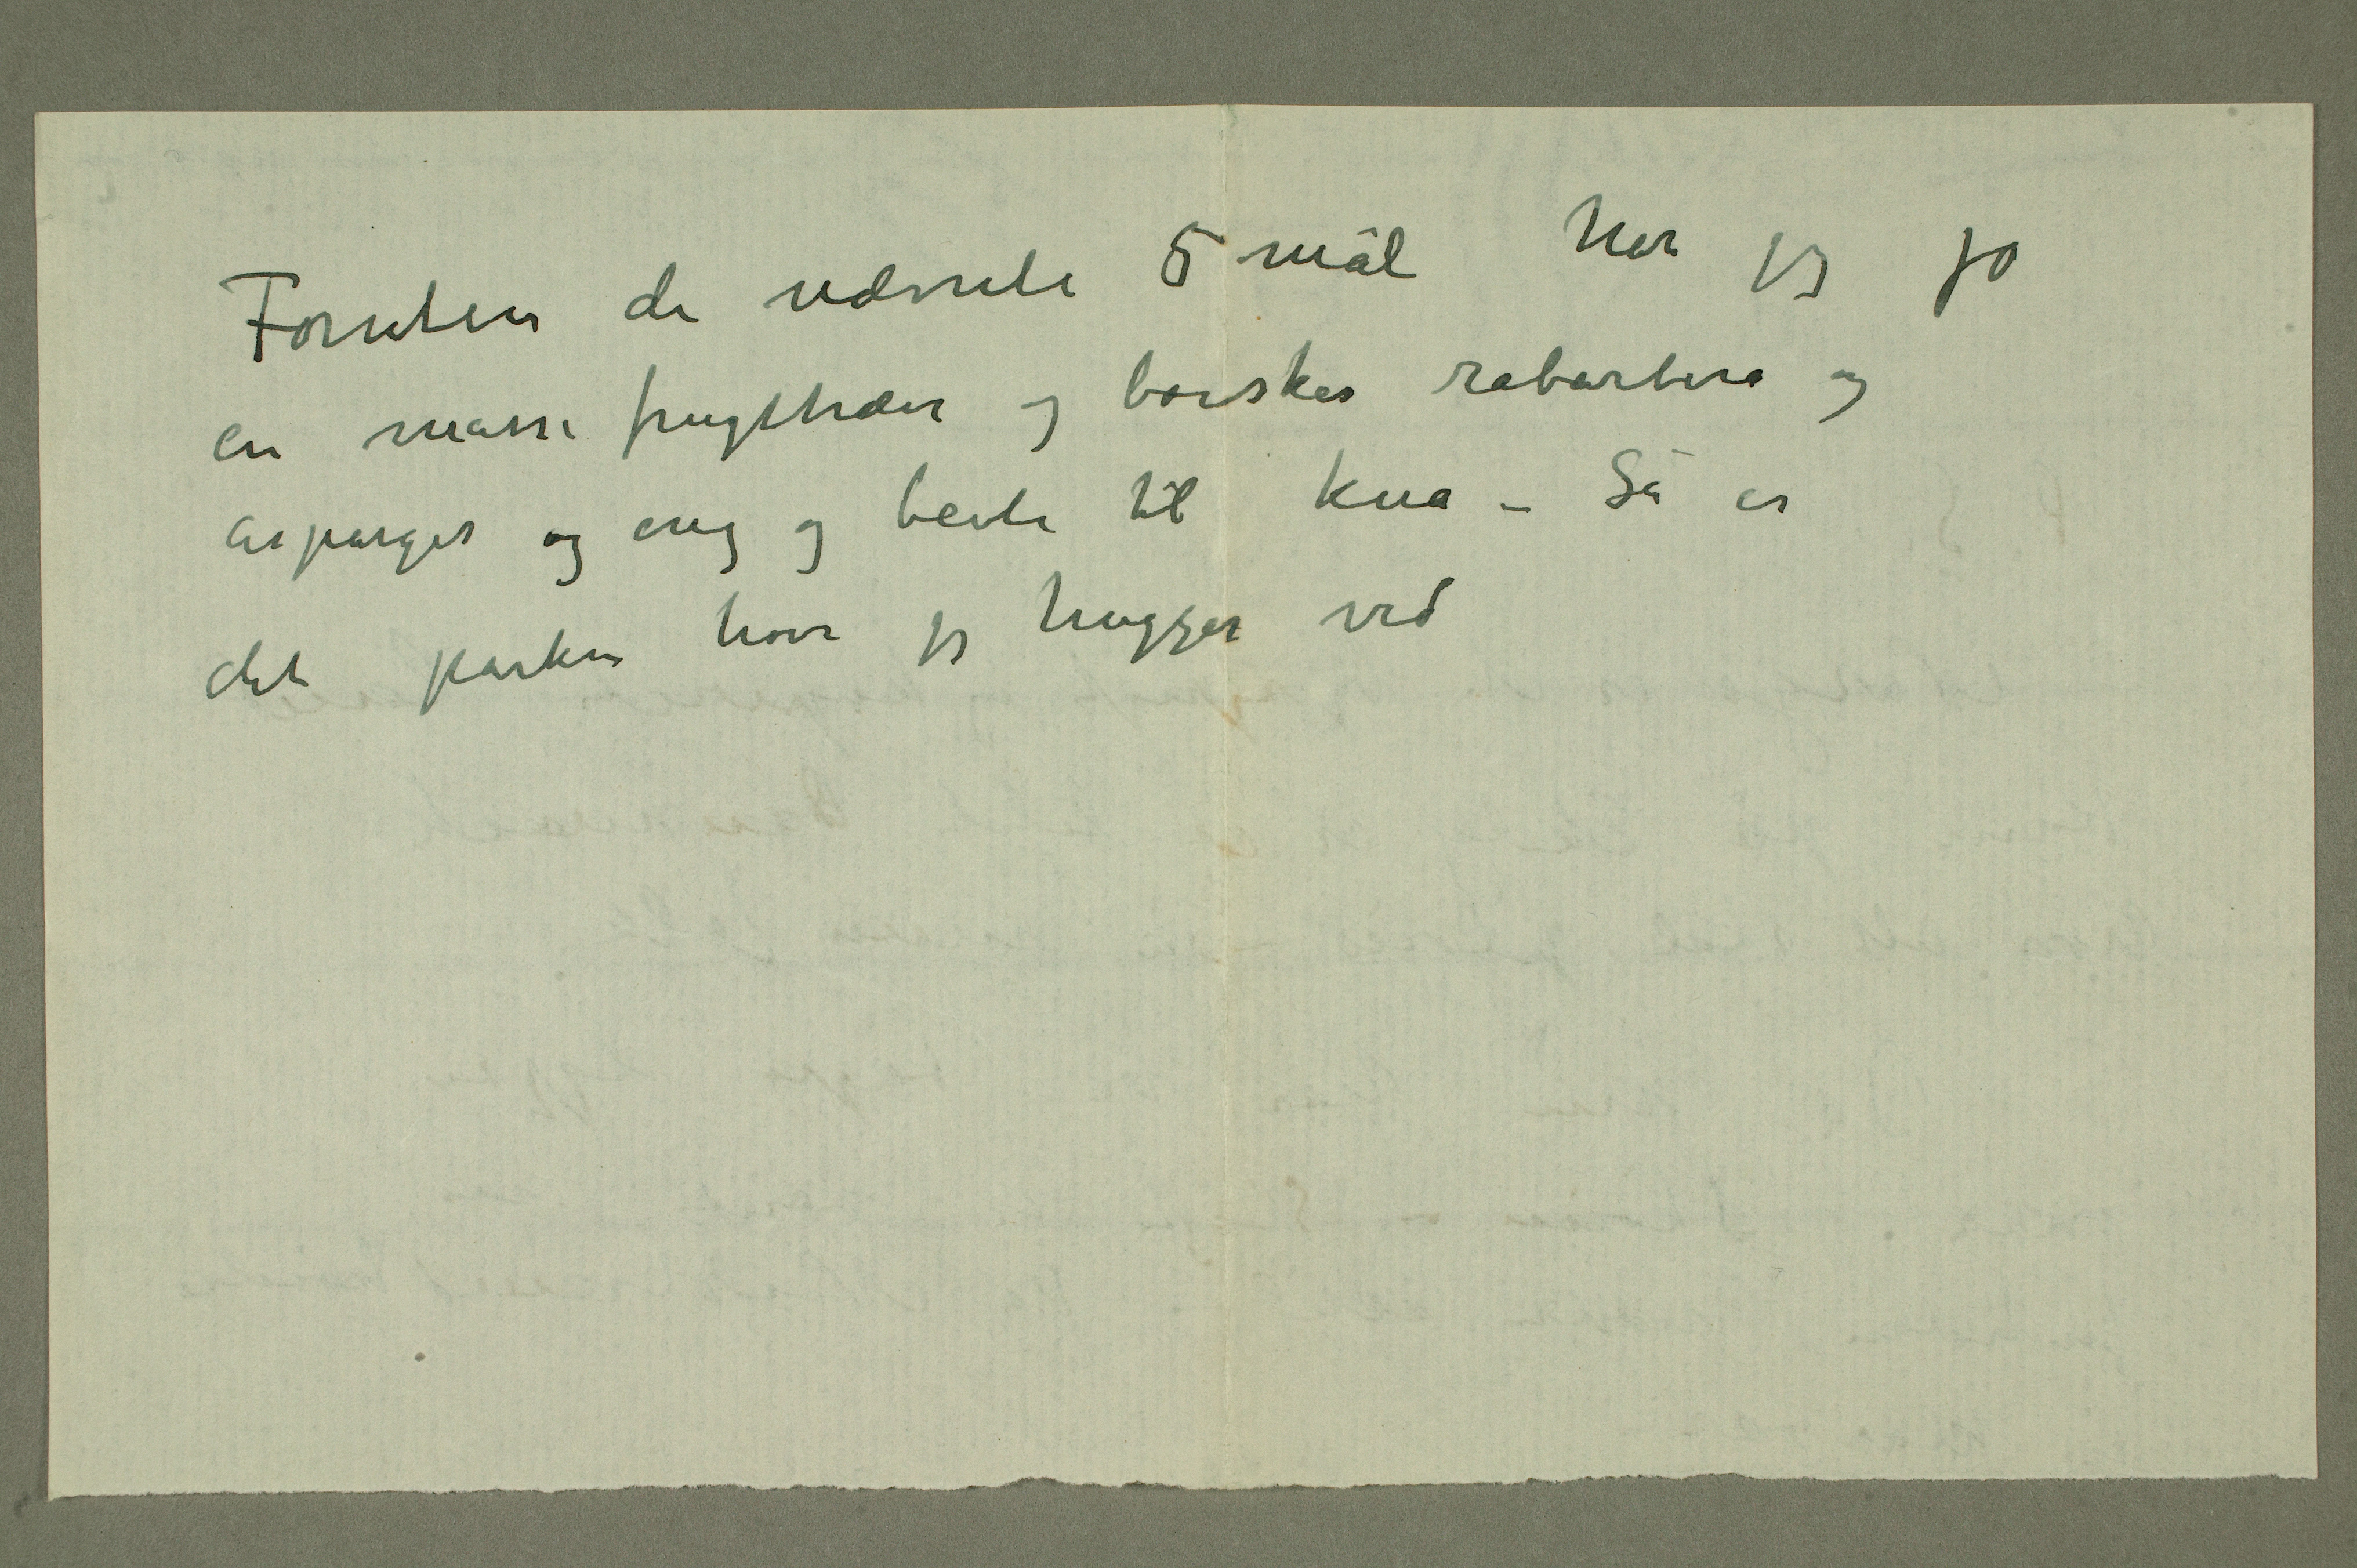 Foruten de nævnte 5 mål har jeg jo
en masse frugttrær og buskas rabarbra og
asparges og eng og beite til kua – Så er
det parken hvor jeg hugger ved